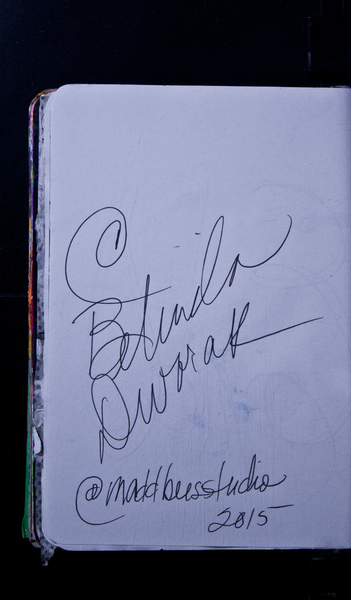 ©
Belinda
Dworak
@maddbeesstudio
2015